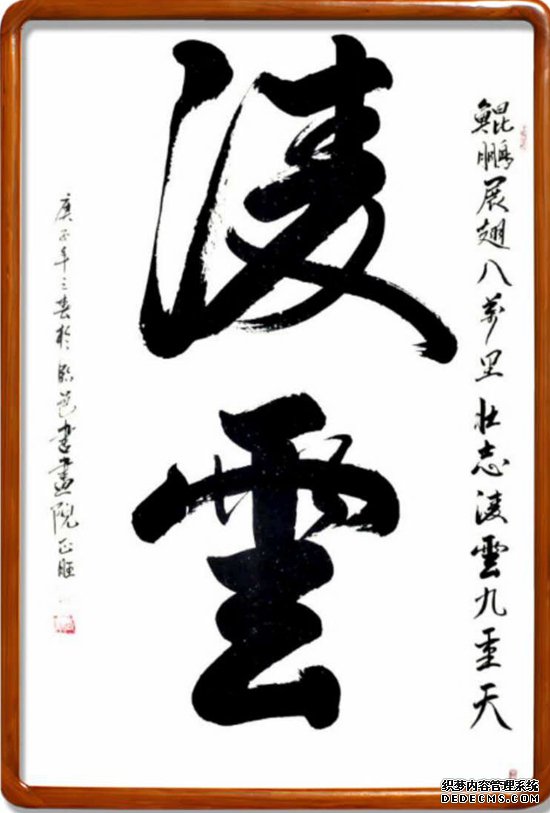 鯤鵬展翅八萬里壯志淩雲九重天
淩雲
庚子年三春於臨邑書畫院正
织梦内容管理系统
DEDECMS.COM